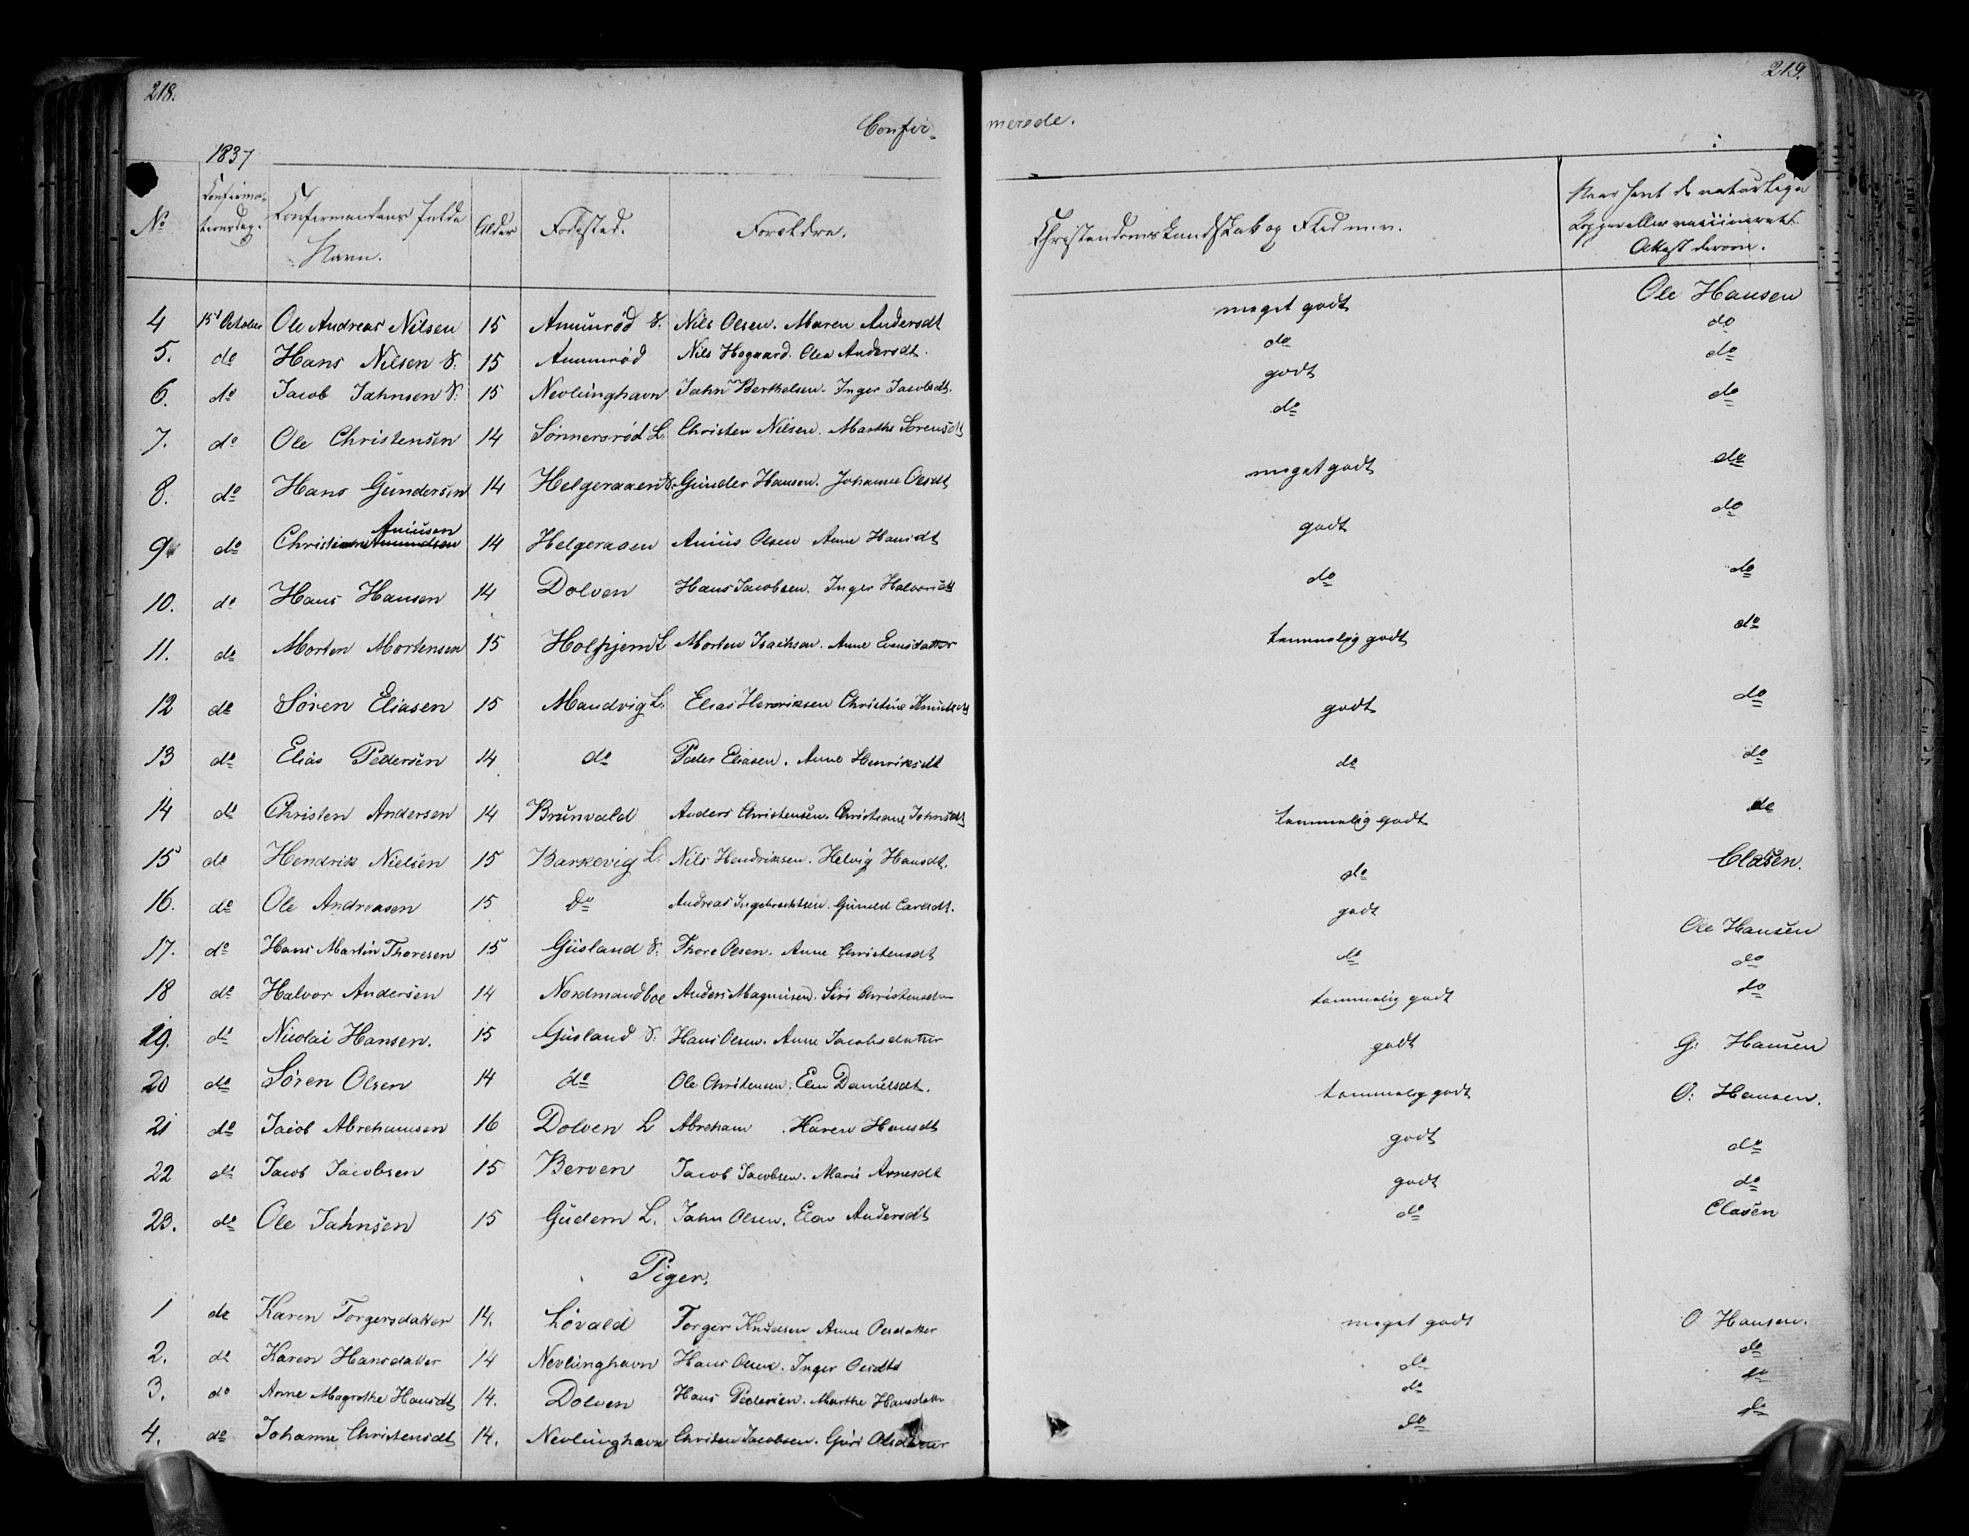 218.
219.
Confir-
merede.
1837
No
Confirma-
tionsdag.
Confirmandens fulde
Navn.
Alder
Fødested.
Forældre.
Christendomskundskab og Flid m.v.
Naar havt de naturlige
Kopper eller vaccineret
Attest derom.
4 15d October Ole Andreas Nilsen 15 Amunrød S. Nils Olsen. Maren Andersdt meget godt Ole Hansen
5. do Hans Nilsen S. 15 Amunrød Nils Hogaard. Olea Andersdt. do do
6. do Jacob Jahnsen S. 15 Nevlunghavn Jahn Berthelsen. Inger Jacobsdt. godt do
7. do Ole Christensen 14 Sønnersrød L. Christen Nilsen. Marthe Sorensdt do do
8. do Hans Gundersen 14 Helgeraaen S. Gunder Hansen. Johanne Olsdt meget godt do
9. do Christian Amundsen Aniusen 14 Helgeraaen Anius Olsen Anne Hansdt godt do
10. do Hans Hansen 14 Dolven Hans Jacobsen. Inger Halvorsdt do do
11. do Morten Mortensen 15 Holhjem L Morten Isachsen. Anne Evensdatter temmelig godt do
12 do Søren Eliasen 15 Mandvig L. Elias Henriksen Christine godt do
13 do Elias Pedersen 14 do Peder Eliasen. Anne Henriksdt do do
14 do Christen Andersen 14 Brunvald Anders Christensen. Christiane Jahnsdt temmelig godt do
15 do Hendrik Nielsen 15 Barkevig L. Nils Hendriksen. Helvig Hansdt. do Clasen.
16. do Ole Andreasen 15 Do Andreas Ingebrechtsen. Gunild Carlsdt. godt Ole Hansen
17. do Hans Martin Thoresen 15 Gusland S. Thore Olsen. Anne Christensdt do do
18 do Halvor Andersen 14 Nordmandboe Anders Magnusen. Siri Christensdtr temmelig godt do
19. do Nicolai Hansen. 15 Gusland S. Hans Olsen. Anne Jacobsdatter godt G. Hansen
20 do Søren Olsen 14 do Ole Christensen. Elen Danielsdt. temmelig godt O: Hansen.
21 do Jacob Abrehamsen 16 Dolven L Abreham . Karen Hansdt godt do
22 do Jacob Jacobsen 15 Berven Jacob Jacobsen. Marie Arnesdt godt do
23. do Ole Jahnsen 15 Gudem L. Jahn Olsen. Elen Andersdt do Clasen
Piger.
1 do Karen Torgersdatter 14. Løvald Torger Knudsen Anne Olsdatter meget godt O Hansen.
2. do Karen Hansdatter 14 Nevlunghavn Hans Olsen. Inger Olsdtr do do
3. do Anne Magrethe Hansdt 14. Dolven Hans Pedersen. Marthe Hansdattr do do
4. do Johanne Christensdt 14. Nevlunghavn Christen Jacobsen. Guri Olsdatter do do